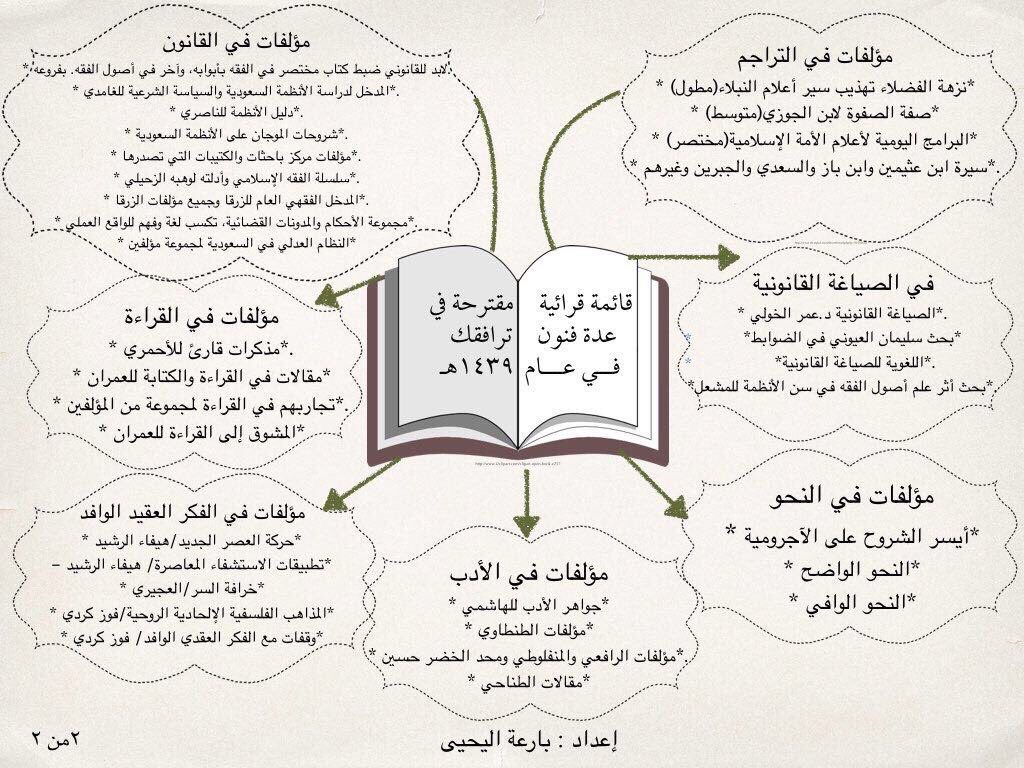 مؤلفات في التراجم
*نزهة الفضلاء تهذيب سير أعلام النبلاء(مطول) *
*صفة الصفوة لابن الجوزي(متوسط) *
*البرامج اليومية لأعلام الأمة الإسلامية(مختصر) *
*سيرة ابن عثيمين وابن باز والسعدي والجبرين وغيرهم. *
مؤلفات في القانون
لابد للقانوني ضبط كتاب مختصر في الفقه بأبوابه، وآخر في أصول الفقه. بفروعه. *
*المدخل لدراسة الأنظمة السعودية والسياسة الشرعية للغامدي. *
*دليل الأنظمة للناصري. *
*شروحات الموجان على الأنظمة السعودية. *
*مؤلفات مركز باحثات والكتيبات التي تصدرها. *
*سلسلة الفقه الإسلامي وأدلته لوهبه الزحيلي. *
*المدخل الفقهي العام للزرقا وجميع مؤلفات الزرقا. *
*مجموعة الأحكام والمدونات القضائية، تكسب لغة وفهم للواقع العملي. *
*النظام العدلي في السعودية لمجموعة مؤلفين *
قائمة قرائية مقترحة في
عدة فنون ترافقك
في عام ١٤٣٩هـ
في الصياغة القانونية
*الصياغة القانونية د.عمر الخولي. *
*بحث سليمان العيوني في الضوابط* *
*اللغوية للصياغة القانونية.* *
*بحث أثر علم أصول الفقه في سن الأنظمة للمشعل.*
مؤلفات في القراءة
*مذكرات قارئ للأحمري. *
*مقالات في القراءة والكتابة للعمران *
*تجاربهم في القراءة لمجموعة من المؤلفين. *
*المشوق إلى القراءة للعمران *
مؤلفات في النحو
*أيسر الشروح على الآجرومية *
*النحو الواضح *
*النحو الوافي *
مؤلفات في الفكر العقيد الوافد
*حركة العصر الجديد/هيفاء الرشيد *
*تطبيقات الاستشفاء المعاصرة/ هيفاء الرشيد –
*خرافة السر/العجيري *
*المذاهب الفلسفية الإلحادية الروحية/فوز كردي *
*وقفات مع الفكر العقدي الوافد/ فوز كردي *
مؤلفات في الأدب
*جواهر الأدب للهاشمي *
*مؤلفات الطنطاوي *
*مؤلفات الرافعي والمنفلوطي ومحد الخضر حسين. *
*مقالات الطناحي *
إعداد : بارعة اليحيى
٢من ٢